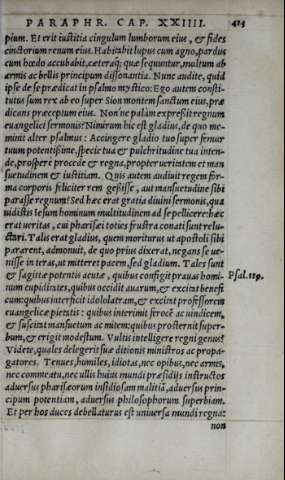 PARAPHR. CAP. XXIIII. 413
pium. Et erit iustitia cingulum lumborum eius, & fides
cinctorium renum eius. Habitabit lupus cum agno, pardus
cum hœdo accubabit, cæteraq; quæ sequuntur, multum ab
armis ac bellis principum dissonantia. Nunc audite, quid
ipse de se prædicat in psalmo mystico: Ego autem consti-
tutus sum rex ab eo super Sion montem sanctum eius, præ
dicans præceptum eius. Non'ne palàm expressit regnum
euangelici sermonis? Nimirum hic est gladius, de quo me-
minit alter psalmus: Accingere gladio tuo super femur
tuum potentissime, specie tua & pulchritudine tua inten-
de, prosperè procede & regna, propter ueritatem et man
suetudinem & iustitiam. Quis autem audiuit regem for-
ma corporis feliciter rem gessisse, aut mansuetudine sibi
parasse regnum? Sed hæc erat gratia diuini sermonis, qua
uidistis Iesum hominum multitudinem ad se pellicere: hæc
erat ueritas, cui pharisæi toties frustra conati sunt relu-
ctari. Talis erat gladius, quem moriturus ut apostoli sibi
pararent, admonuit, de quo prius dixerat, negans se ue-
nisse in terras, ut mitteret pacem, sed gladium. Tales sunt
& sagittæ potentis acutæ, quibus configit prauas homi- Psal. 119.
num cupiditates, quibus occidit auarum, & excitat benefi
cum: quibus interficit idololatram, & excitat professorem
euangelicæ pietatis: quibus interimit ferocē ac uindicem,
& suscitat mansuetum ac mitem: quibus prosternit super-
bum, & erigit modestum. Vultis intelligere regni genus?
Videte, quales delegerit suæ ditionis ministros ac propa-
gatores. Tenues, humiles, idiotas, nec opibus, nec armis,
nec commeatu, nec ullis huius mundi præsidijs instructos
aduersus pharisæorum insidiosam malitiā, aduersus prin-
cipum potentiam, aduersus philosophorum superbiam.
Et per hos duces debellatur est uniuersa mundi regna:
non